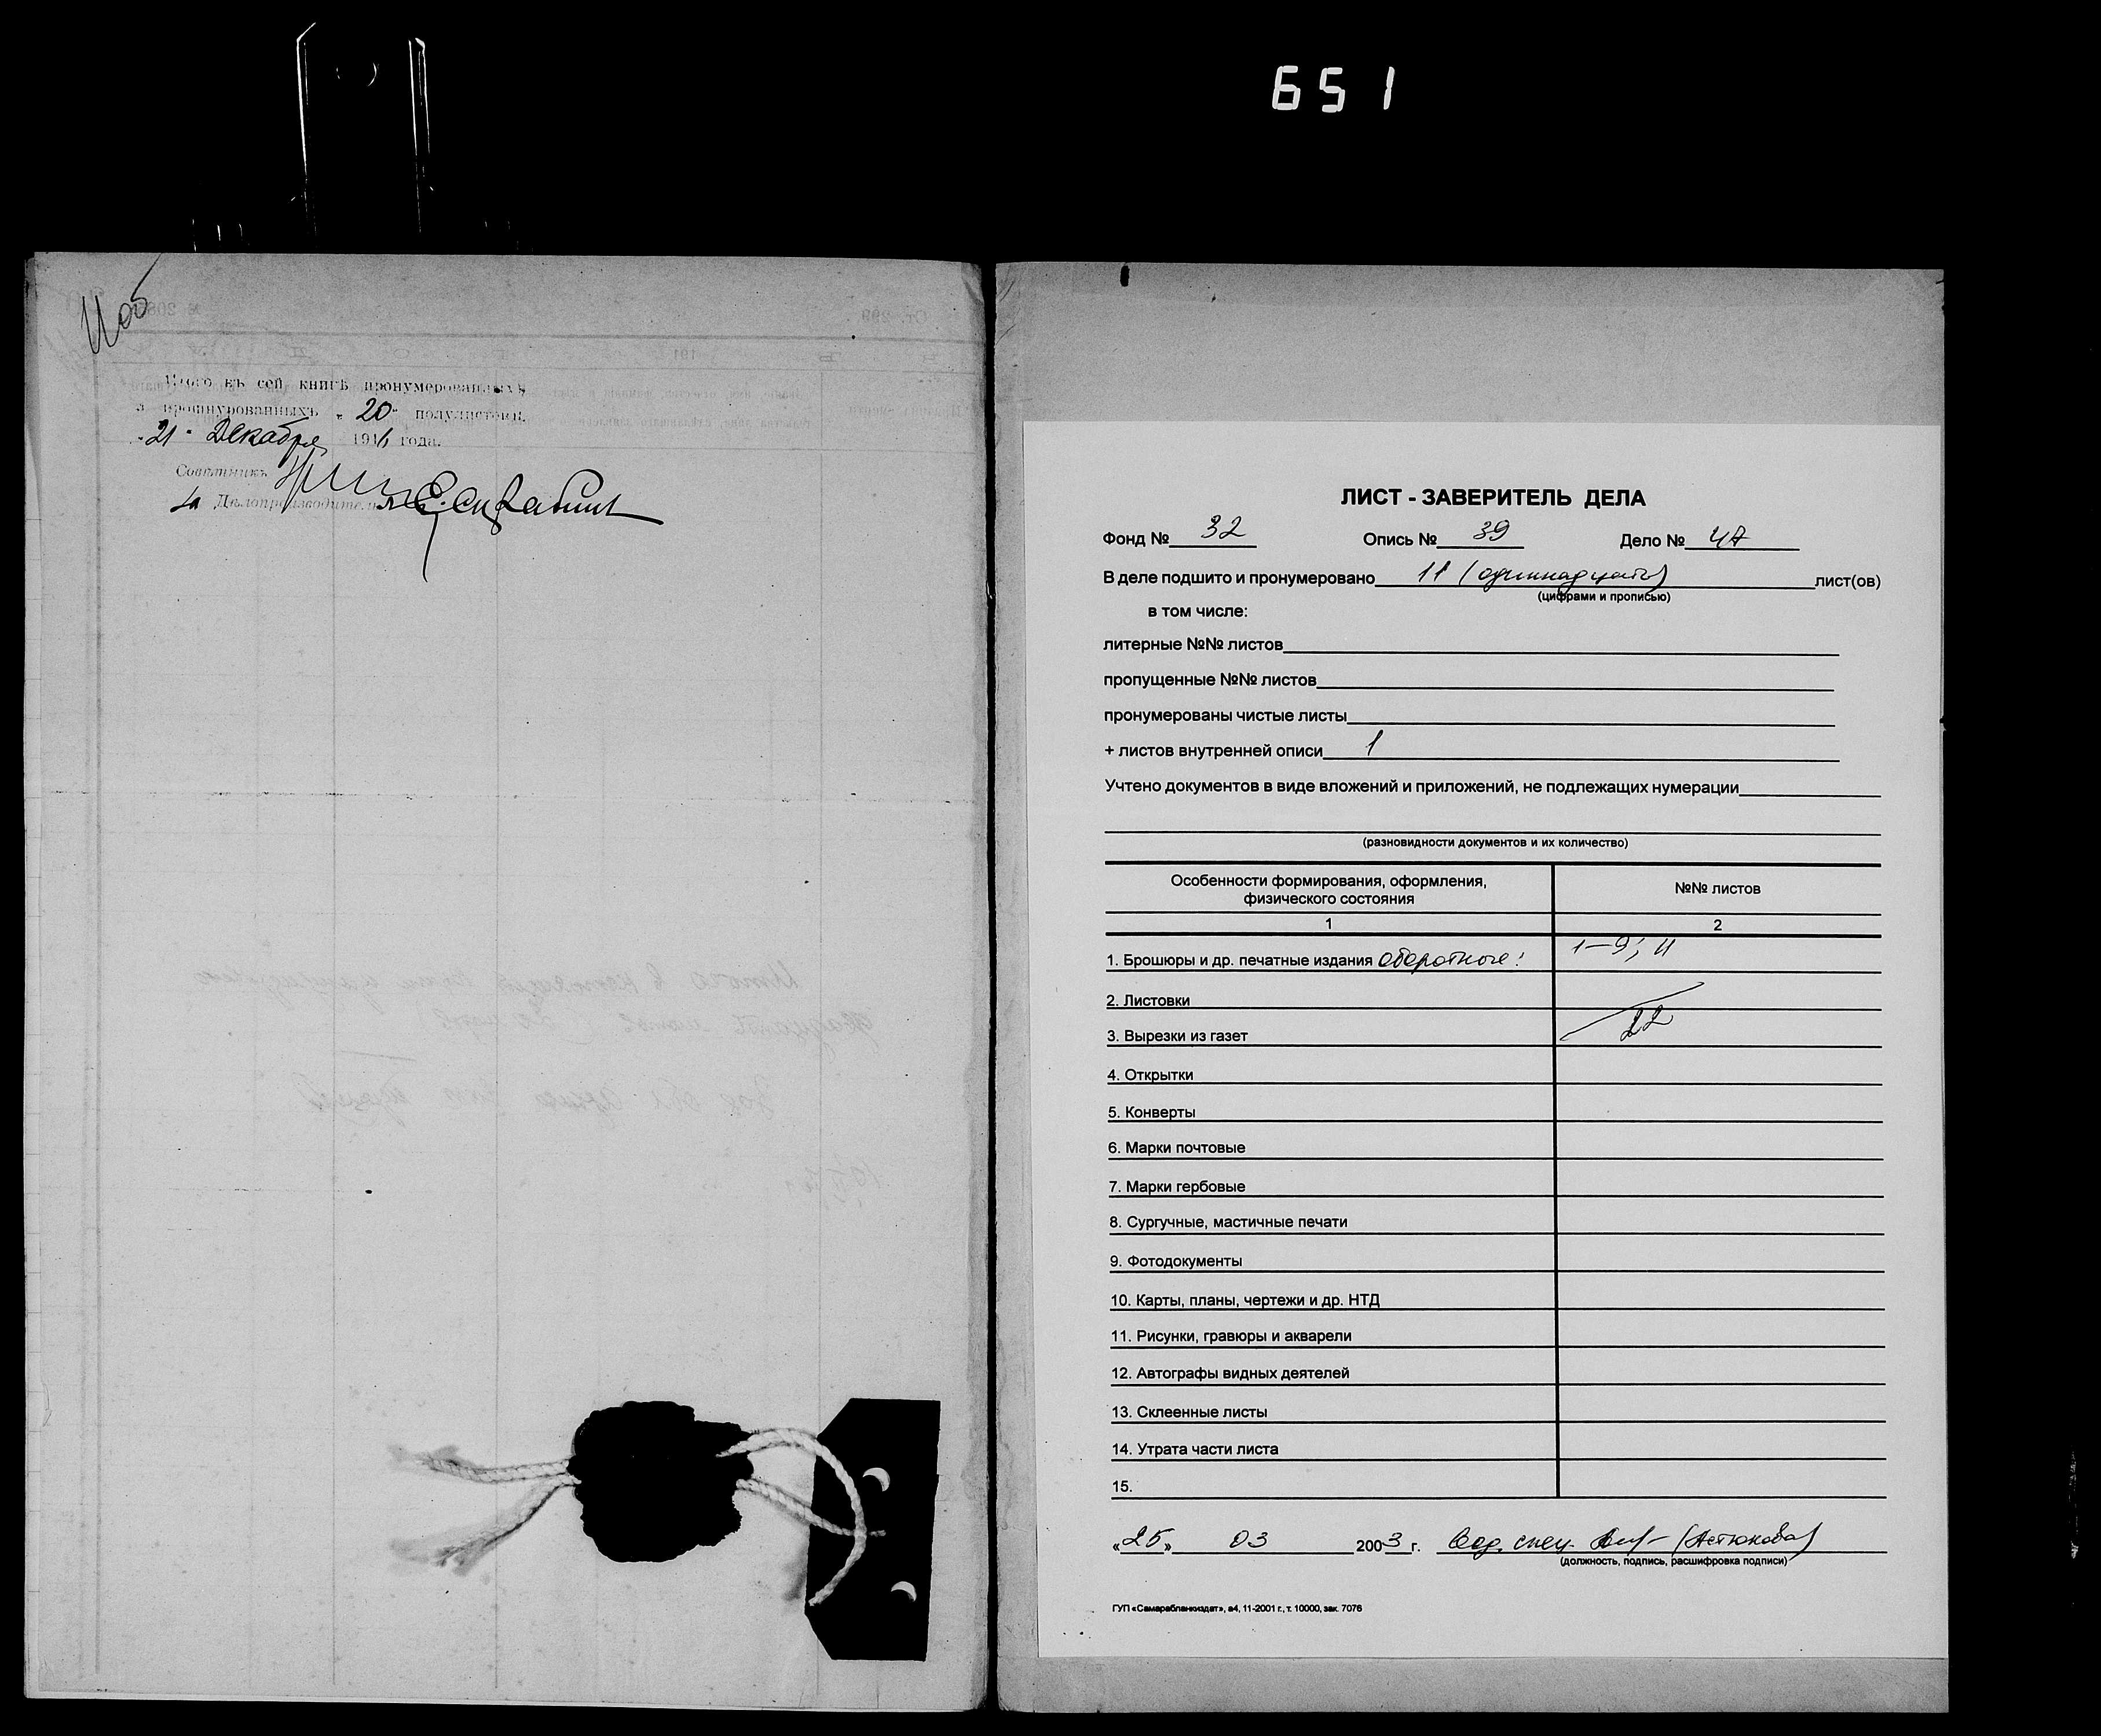 651
11об
Итого въ сей книгѣ пронумерованныхъ
и прошнурованныхъ „ 20 " полулистовъ.
„ 21 " Декабря 1916 года.
Совѣтникъ
Дѣлопроизводитель
ЛИСТ - ЗАВЕРИТЕЛЬ ДЕЛА
Фонд № 32 Опись № 39 Дело № 47
В деле подшито и пронумеровано 11 (одиннадцать) лист(ов)
(цифрами и прописью)
в том числе:
литерные №№ листов
пропущенные №№ листов
пронумерованы чистые листы
+ листов внутренней описи 1
Учтено документов в виде вложений и приложений, не подлежащих нумерации
(разновидности документов и их количество)
Особенности формирования, оформления, физического состояния №№ листов
1 2
1. Брошюры и др. печатные издания оборотные: 1–9; 11
2. Листовки
3. Вырезки из газет 22
4. Открытки
5. Конверты
6. Марки почтовые
7. Марки гербовые
8. Сургучные, мастичные печати
9. Фотодокументы
10. Карты, планы, чертежи и др. НТД
11. Рисунки, гравюры и акварели
12. Автографы видных деятелей
13. Склеенные листы
14. Утрата части листа
15.
«25» 03 2003 г. Вед. спец. (Астюкова)
(должность, подпись, расшифровка подписи)
ГУП «Самарабланкиздат», а4, 11-2001 г., т. 10000, зак. 7076